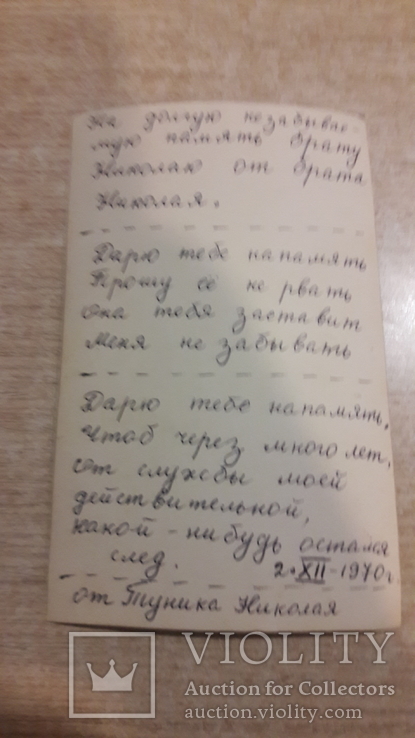 На долгую незабывае-
мую память брату
Николаю от брата
Николая.
Дарю тебе на память
Прошу её не рвать
она тебя заставит
меня не забывать
Дарю тебе на память,
Чтоб через много лет,
от службы моей
действительной,
какой-нибудь остался
след.
2.XII-1970г.
от Туника Николая
VIOLITY
Auction for Collectors
auction.violity.com